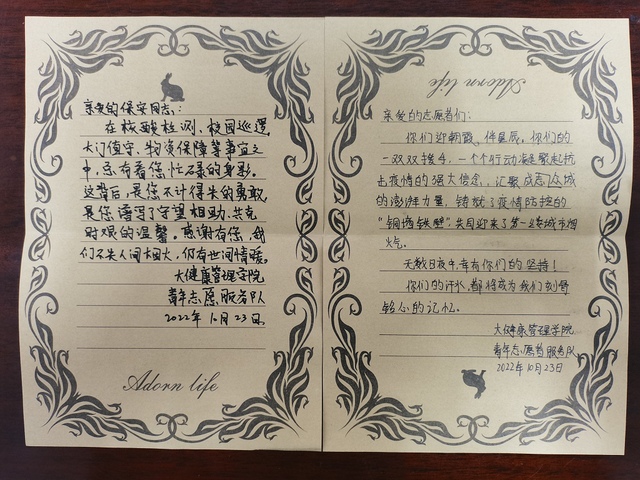 亲爱的保安同志:
在核酸检测、校园巡逻
大门值守、物资保障等事宜之
中,总有着您忙碌的身影。
这背后,是您不计得失的勇敢,
是您谱写了守望相助、共克
时艰的温馨。感谢有您,我
们不失人间烟火,仍有世间情暖。
大健康管理学院
青年志愿服务队
2022年10月23日
Adorn life
Adorn life
亲爱的志愿者们:
你们迎朝霞、伴星辰。你们的
一双双援手、一个个行动凝聚起抗
击疫情的强大信念,汇聚成志愿众城
的澎湃力量,铸就了疫情防控的
“铜墙铁壁”,共同迎来了第一缕城市烟
火气。
无数日夜中,幸有你们的坚持!
你们的付出,都将成为我们刻骨
铭心的记忆。
大健康管理学院
青年志愿者服务队
2022年10月23日